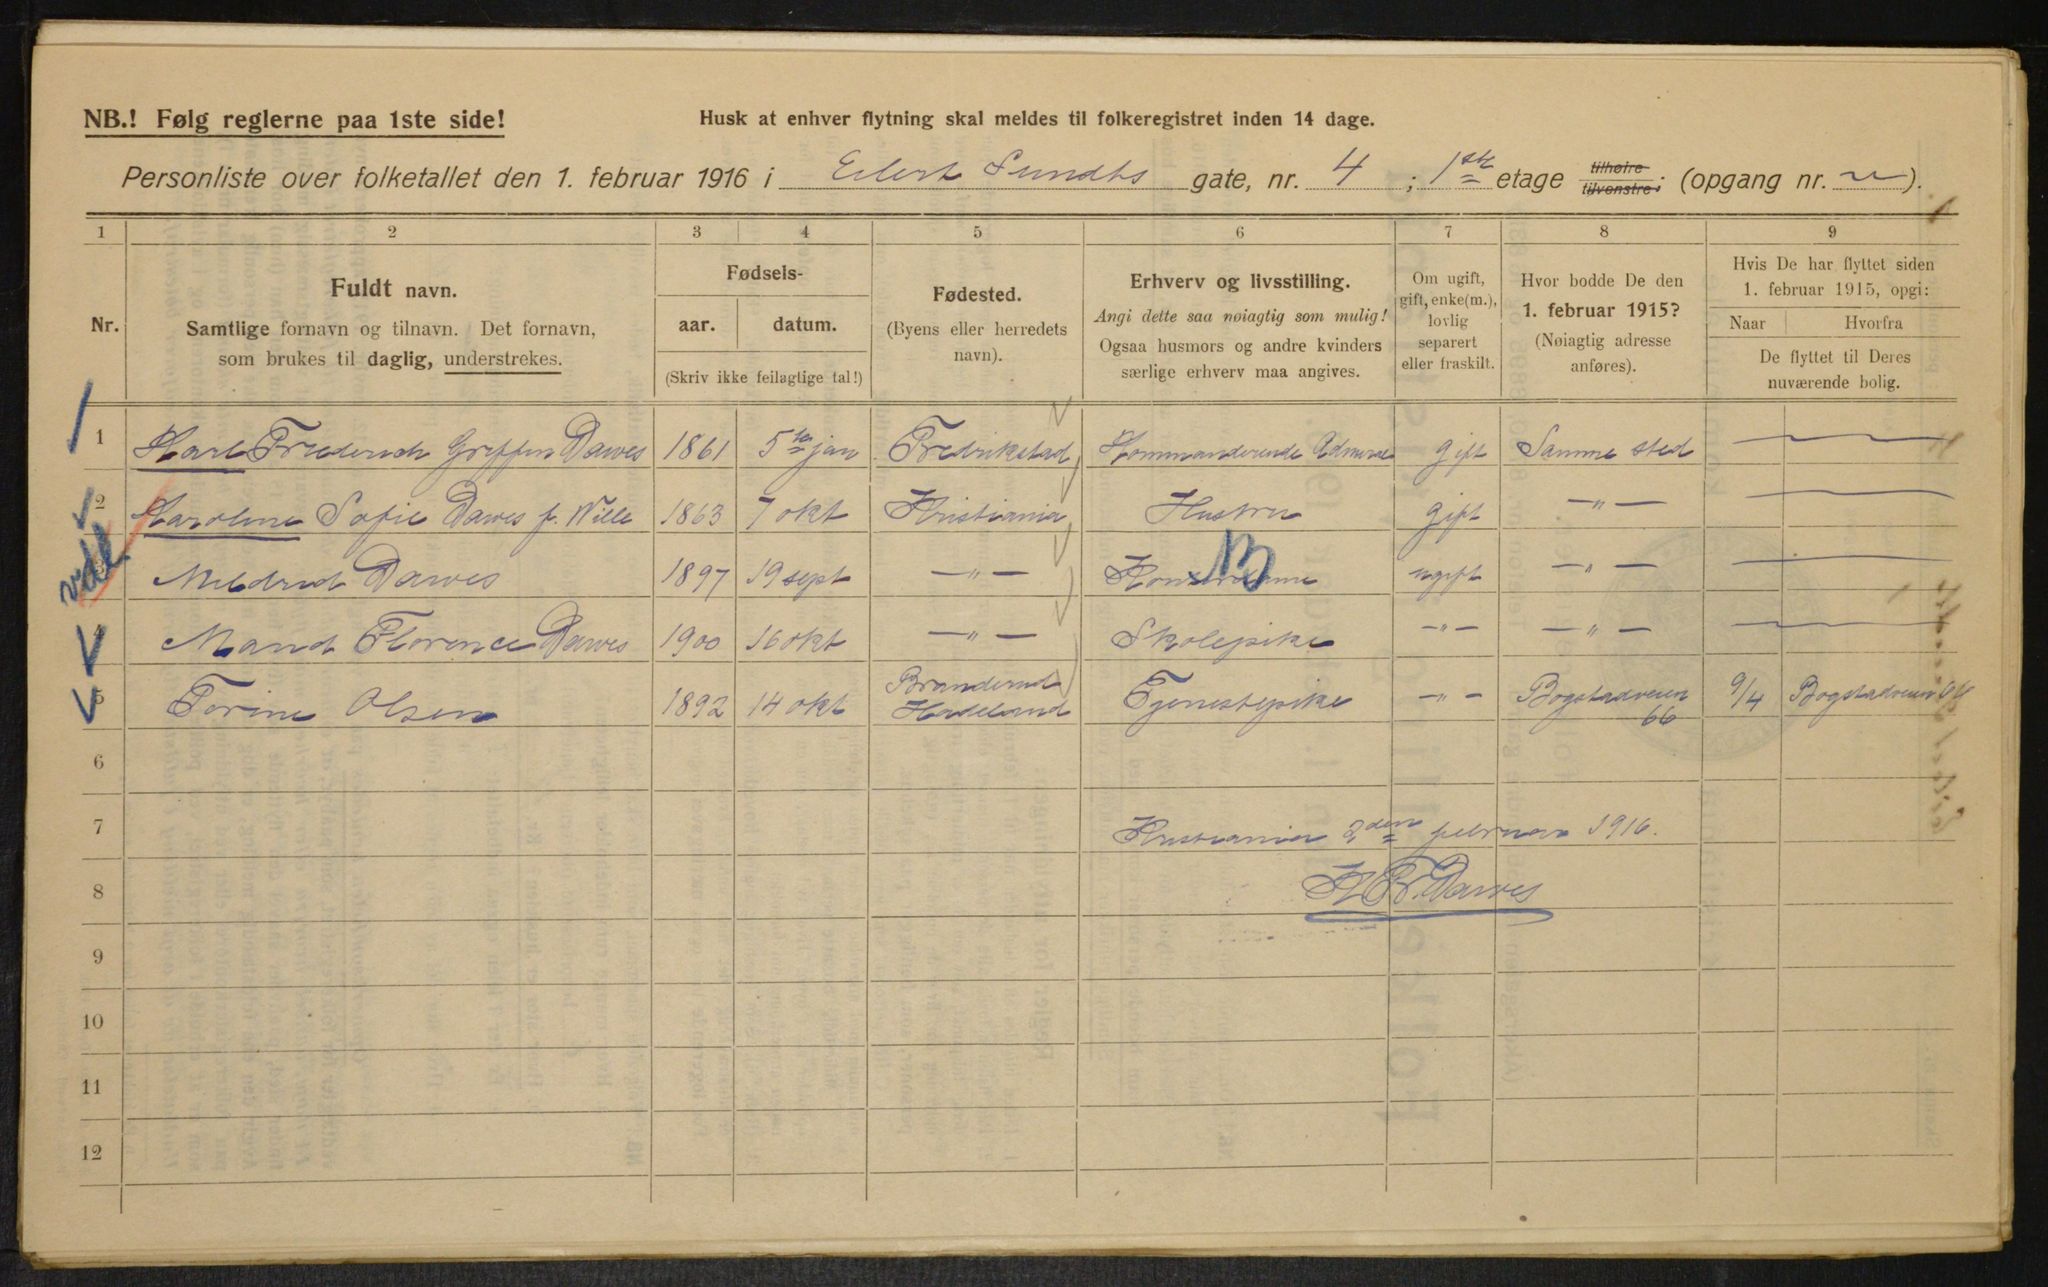 NB.! Følg reglerne paa 1ste side!
Husk at enhver flytning skal meldes til folkeregistret inden 14 dage.
Personliste over folketallet den 1. februar 1916 i Eilert Sundts gate, nr. 4 ; 1ste etage tilhøire tilvenstre; (opgang nr. ).
1 2 3 4 5 6 7 8 9
Nr.
Fuldt navn.
Samtlige fornavn og tilnavn. Det fornavn,
som brukes til daglig, understrekes.
Fødsels-
aar. datum.
(Skriv ikke feilagtige tal!)
Fødested.
(Byens eller herredets
navn).
Erhverv og livsstilling.
Angi dette saa nøiagtig som mulig!
Ogsaa husmors og andre kvinders
særlige erhverv maa angives.
Om ugift,
gift, enke(m.),
lovlig
separert
eller fraskilt.
Hvor bodde De den
1. februar 1915?
(Nøiagtig adresse
anføres).
Hvis De har flyttet siden
1. februar 1915, opgi:
Naar Hvorfra
De flyttet til Deres
nuværende bolig.
1 Karl Frederich Griffin Dawes 1861 5te jan Fredrikstad Kommanderende Admiral gift Samme sted
2 Karoline Sofie Dawes f. Wille 1863 7 okt Kristiania Hustru gift — " —
3 Mildred Dawes 1897 19 sept — " — ugift — " —
Maud Florence Dawes 1900 16 okt — " — Skolepike — " — — " —
5 Torine Olsen 1892 14 okt Branderud Hadeland Tjenestepike — " — Bogstadveien 66 9/4 Bogstadveien 66
6
7 Kristiania 2den februar 1916.
8 K Fr. Dawes
9
10
11
12